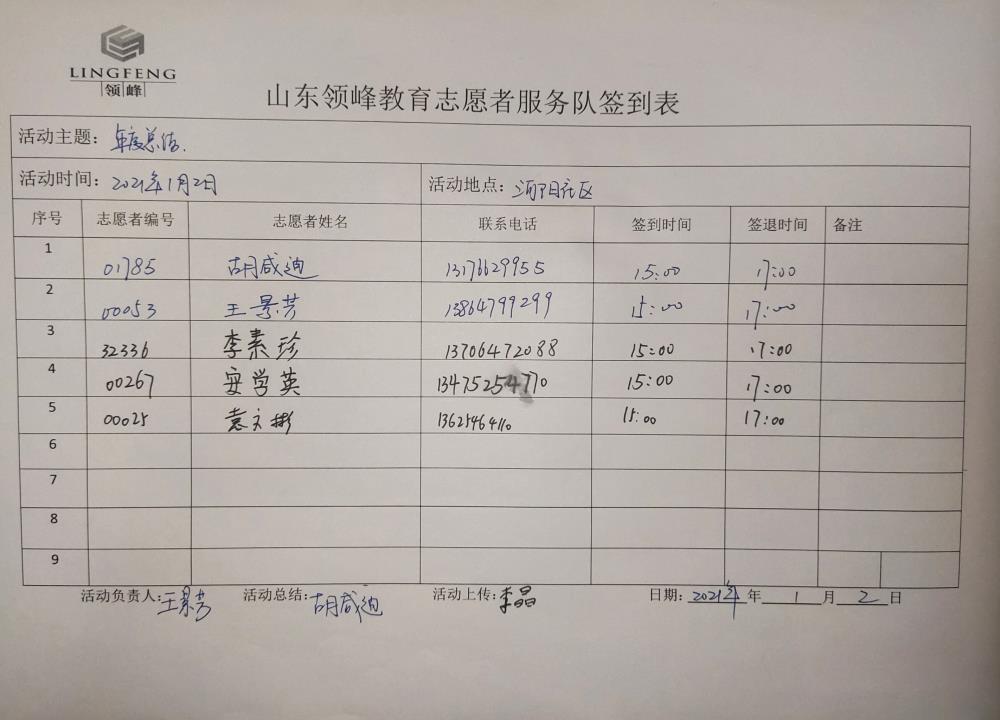 LINGFENG
领峰
山东领峰教育志愿者服务队签到表
活动主题: 年度总结.
活动时间: 2021年1月2日 活动地点: 泗阳社区
序号 志愿者编号 志愿者姓名 联系电话 签到时间 签退时间 备注
1 01785 胡咸迪 13176629955 15:00 17:00
2 00053 王景芳 13864799299 15:00 17:00
3 32336 李素珍 13706472088 15:00 17:00
4 00267 安学英 13475254770 15:00 17:00
5 00025 袁文彬 13625464110 15:00 17:00
6
7
8
9
活动负责人: 王景芳 活动总结: 胡咸迪 活动上传: 李晶 日期: 2021年 年 1 月 2 日